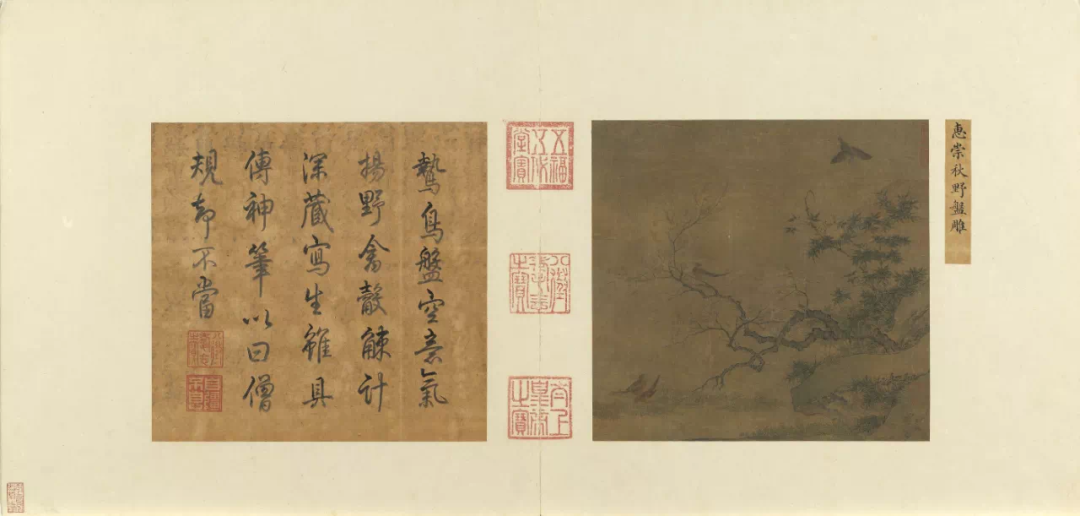 惠崇秋野盤雕
五福五代堂寶
八徵耄念之寶
太上皇帝之寶
鷙鳥盤空意氣
揚野禽觳觫計
深藏寫生雖具
傳神筆以曰僧
規却不當